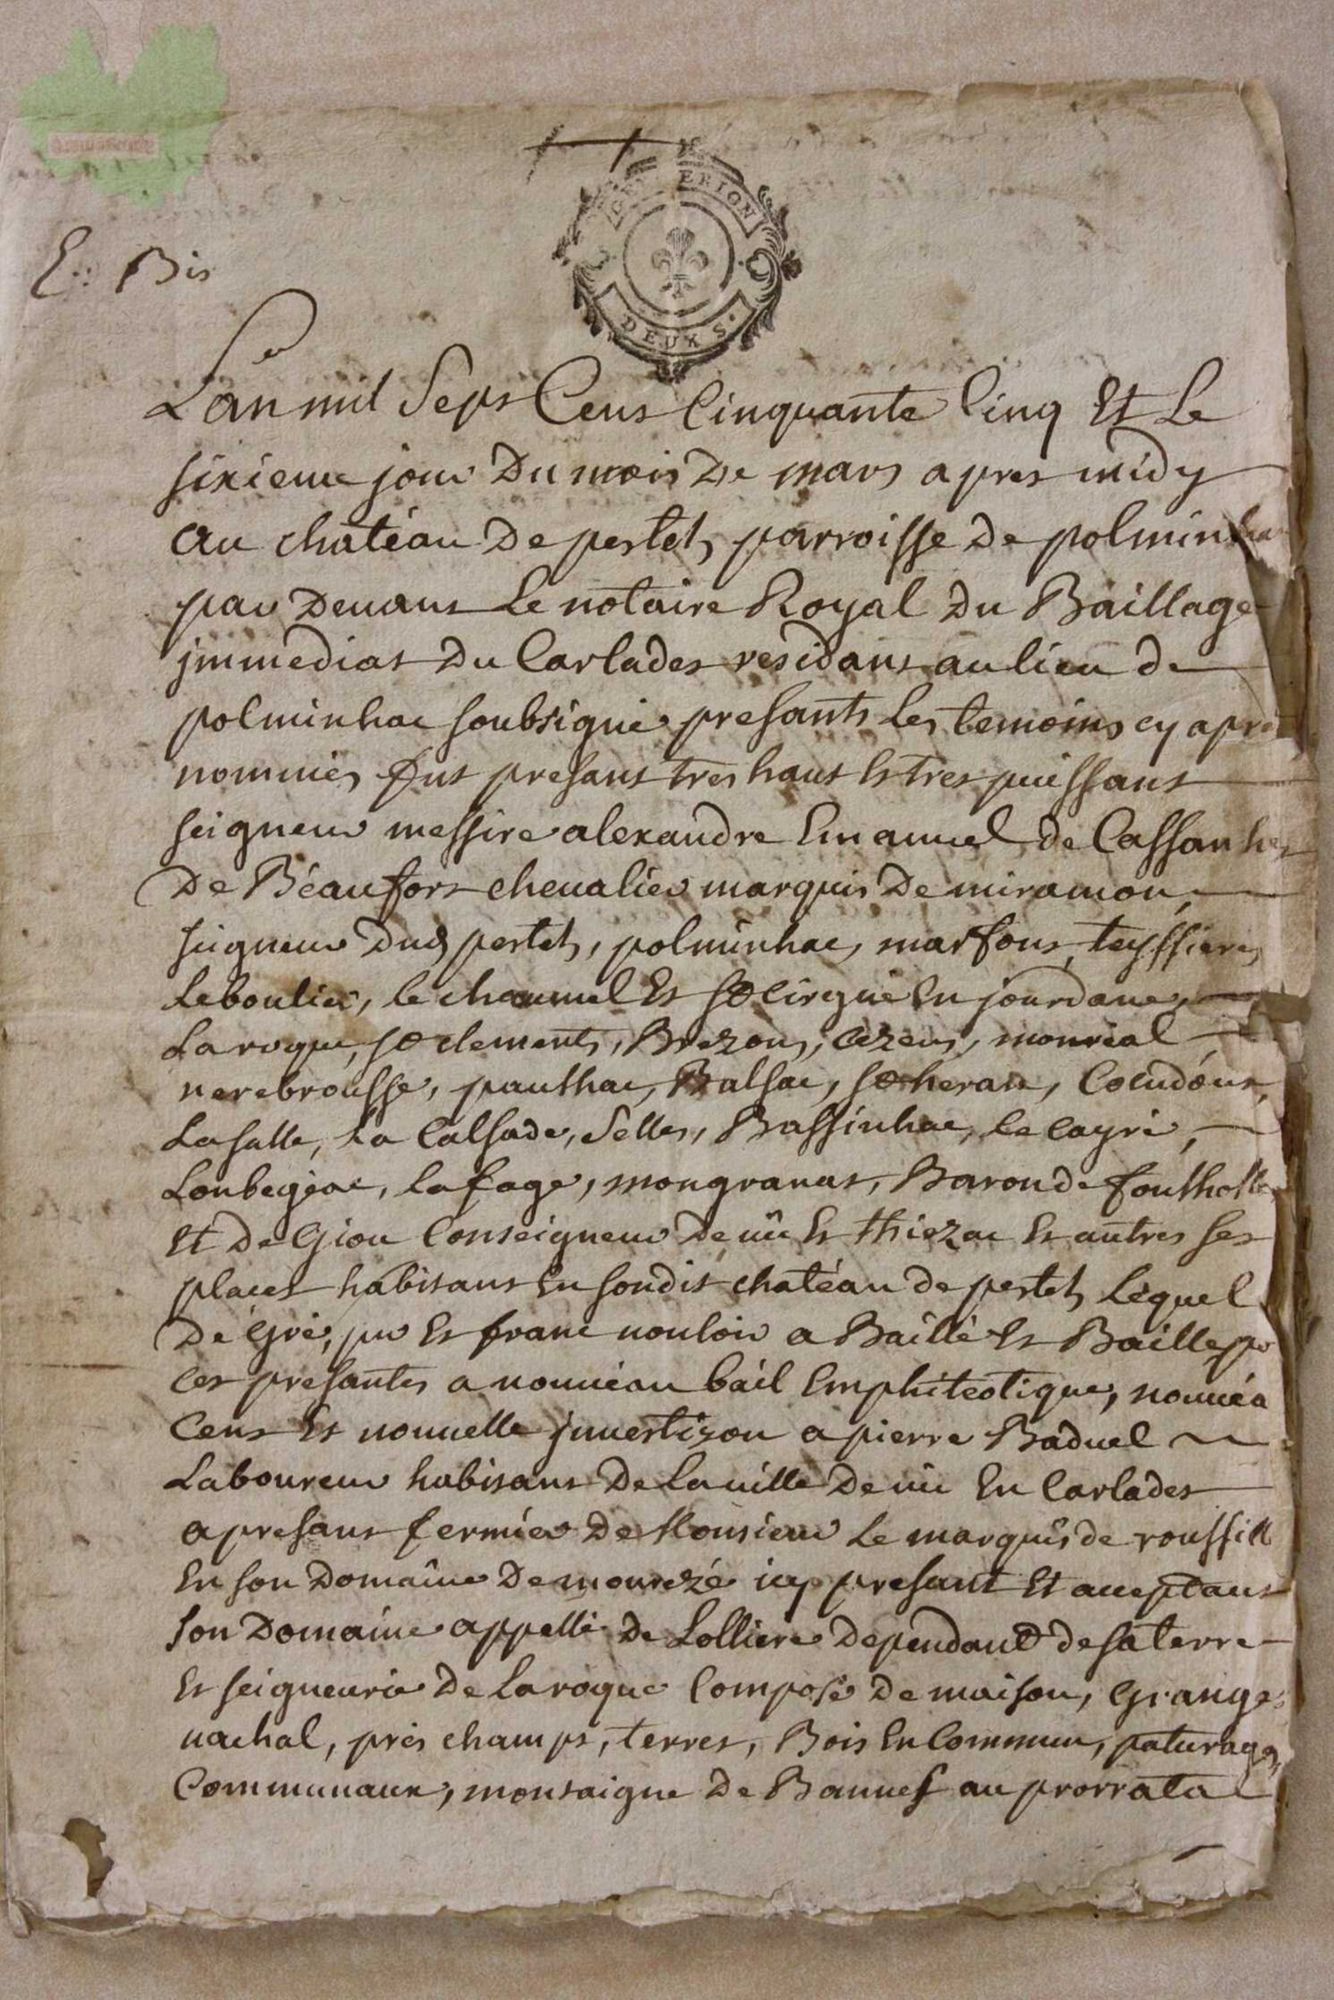 GEN ERION
DEUX S.
E.: Bis
L'an mil Sept Cens Cinquante Cinq Et Le
sixieme jour Du mois De mars apres midy
au chatéau De pestels parroisse De polminhac
par Devant Le notaire Royal Du Baillage
jmmediat Du Carlades residant au lieu de
polminhac soubsigné presants Les temoins cy apres
nommés fut presant tres haut Et tres puissant
seigneur messire alexandre Emanuel de Cassanhes
De Béaufort chevalier marquis De miramon,
seigneur Dud pestels, polminhac, marfons, teyssieres
Leboulier, le chaumel Et st Cirgue En jourdane,
Laroque, st clements, Brezons, cezens, monréal
nerebrousse, paulhac, Balsac, st heran, Coeudóus,
Lasalle, La Calsade, Selles, Bassinhac, le cayré,
Loubegeac, Lafage, mongranat, Baron de foulholle
Et De Giou Conseigneur De vic Et thiezac Et autres ses
places habitant En sondit chatéau de pestels Lequel
De Gré, pur Et franc vouloir a Baillé Et Baille par
ces présantes a nouveau bail Emphiteotique, nouvéa
Cens Et nouvelle jnvestizon a pierre Baduel
Laboureur habitant De La ville De vic En Carlades
apresant fermier De Monsieur Le marquis de roussille
En son Domaine De mourezé icy presant Et acceptant
son Domaine appellé De Lolliere Dependant de sa terre
Et seigneurie De Laroque Composé De maison, Grange,
vachal, prés champs, terres, Bois En Commun, paturages
Communaux, montaigne De Bannes au prorrata